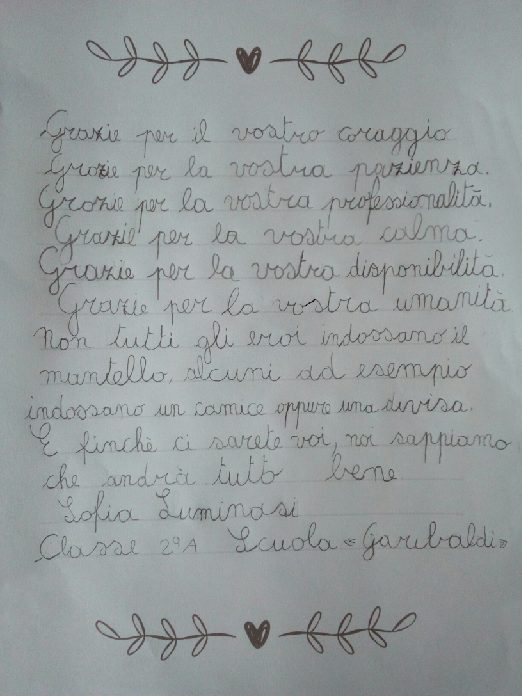 Grazie per il vostro coraggio
Grazie per la vostra pazienza.
Grazie per la vostra professionalità.
Grazie per la vostra calma.
Grazie per la vostra disponibilità.
Grazie per la vostra umanità
Non tutti gli eroi indossano il
mantello, alcuni ad esempio
indossano un camice oppure una divisa.
E finchè ci sarete voi, noi sappiamo
che andrà tutto bene
Sofia Luminasi
Classe 2ºA Scuola «Garibaldi»